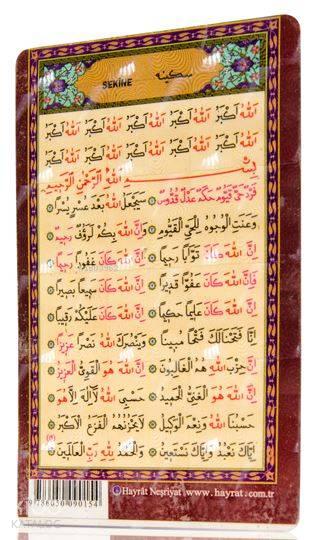 سكينه
SEKİNE
اَللّٰهُ اَكْبَرُ اَللّٰهُ اَكْبَرُ اَللّٰهُ اَكْبَرُ اَللّٰهُ اَكْبَرُ اَللّٰهُ اَكْبَرُ
اَللّٰهُ اَكْبَرُ اَللّٰهُ اَكْبَرُ اَللّٰهُ اَكْبَرُ اَللّٰهُ اَكْبَرُ اَللّٰهُ اَكْبَرُ
بِسْمِ اللّٰهِ الرَّحْمٰنِ الرَّحِيمِ
فَرْدٌ حَىٌّ قَيُّومٌ حَكَمٌ عَدْلٌ قُدُّوسٌ سَيَجْعَلُ اللّٰهُ بَعْدَ عُسْرٍ يُسْرًا
وَعَنَتِ الْوُجُوهُ لِلْحَىِّ الْقَيُّومِ وَاِنَّ اللّٰهَ بِكُمْ لَرَؤُفٌ رَحِيمٌ
اِنَّ اللّٰهَ كَانَ تَوَّابًا رَحِيمًا اِنَّ اللّٰهَ كَانَ غَفُورًا رَحِيمًا
فَاِنَّ اللّٰهَ كَانَ عَفُوًّا قَدِيرًا اِنَّ اللّٰهَ كَانَ سَمِيعًا بَصِيرًا
اِنَّ اللّٰهَ كَانَ عَلِيمًا حَكِيمًا اِنَّ اللّٰهَ كَانَ عَلَيْكُمْ رَقِيبًا
اِنَّا فَتَحْنَا لَكَ فَتْحًا مُبِينًا وَيَنْصُرَكَ اللّٰهُ نَصْرًا عَزِيزًا
اِنَّ حِزْبَ اللّٰهِ هُمُ الْغَالِبُونَ اِنَّ اللّٰهَ هُوَ الْقَوِىُّ الْعَزِيزُ
اِنَّ اللّٰهَ هُوَ الْغَنِىُّ الْحَمِيدُ حَسْبِىَ اللّٰهُ لَٓا اِلٰهَ اِلَّا هُوَ
حَسْبُنَا اللّٰهُ وَنِعْمَ الْوَكِيلُ لَا يَحْزُنُهُمُ الْفَزَعُ الْاَكْبَرُ
اِيَّاكَ نَعْبُدُ وَاِيَّاكَ نَسْتَعِينُ وَالْحَمْدُ لِلّٰهِ رَبِّ الْعَالَمِينَ
9786050090154
Hayrât Neşriyat www.hayrat.com.tr